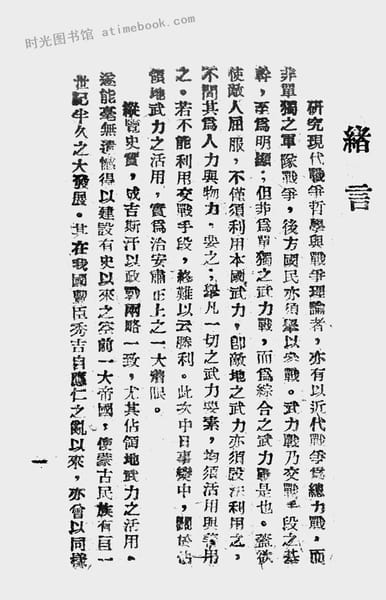 时光图书馆 - atimebook.com
緒言
研究現代戰爭哲學與戰爭理論者，亦有以近代戰爭爲總力戰，而
非單獨之軍隊戰爭，後方國民亦須舉以參戰。武力戰乃交戰手段之基
幹，至爲明顯；但非爲單獨之武力戰，而爲綜合之武力戰是也。蓋欲
使敵人屈服，不僅須利用本國武力，卽敵地之武力亦須設法利用之，
不問其爲人力與物力。要之，舉凡一切之武力要素，均須活用與善用
之。若不能利用交戰手段，終難以云勝利。此次中日事變中，關於佔
領地武力之活用，實爲治安肅正上之一大着眼。
縱覽史實，成吉斯汗以政戰兩略一致，尤其佔領地武力之活用。
遂能毫無遺憾得以建設有史以來之空前一大帝國，使蒙古民族有自一
世紀半久之大發展。其在我國豐臣秀吉自應仁之亂以來，亦曾以同樣
一